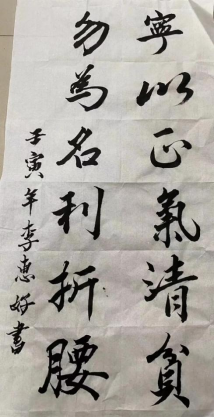 寧以正氣清貧
勿為名利折腰
壬寅年李惠好書